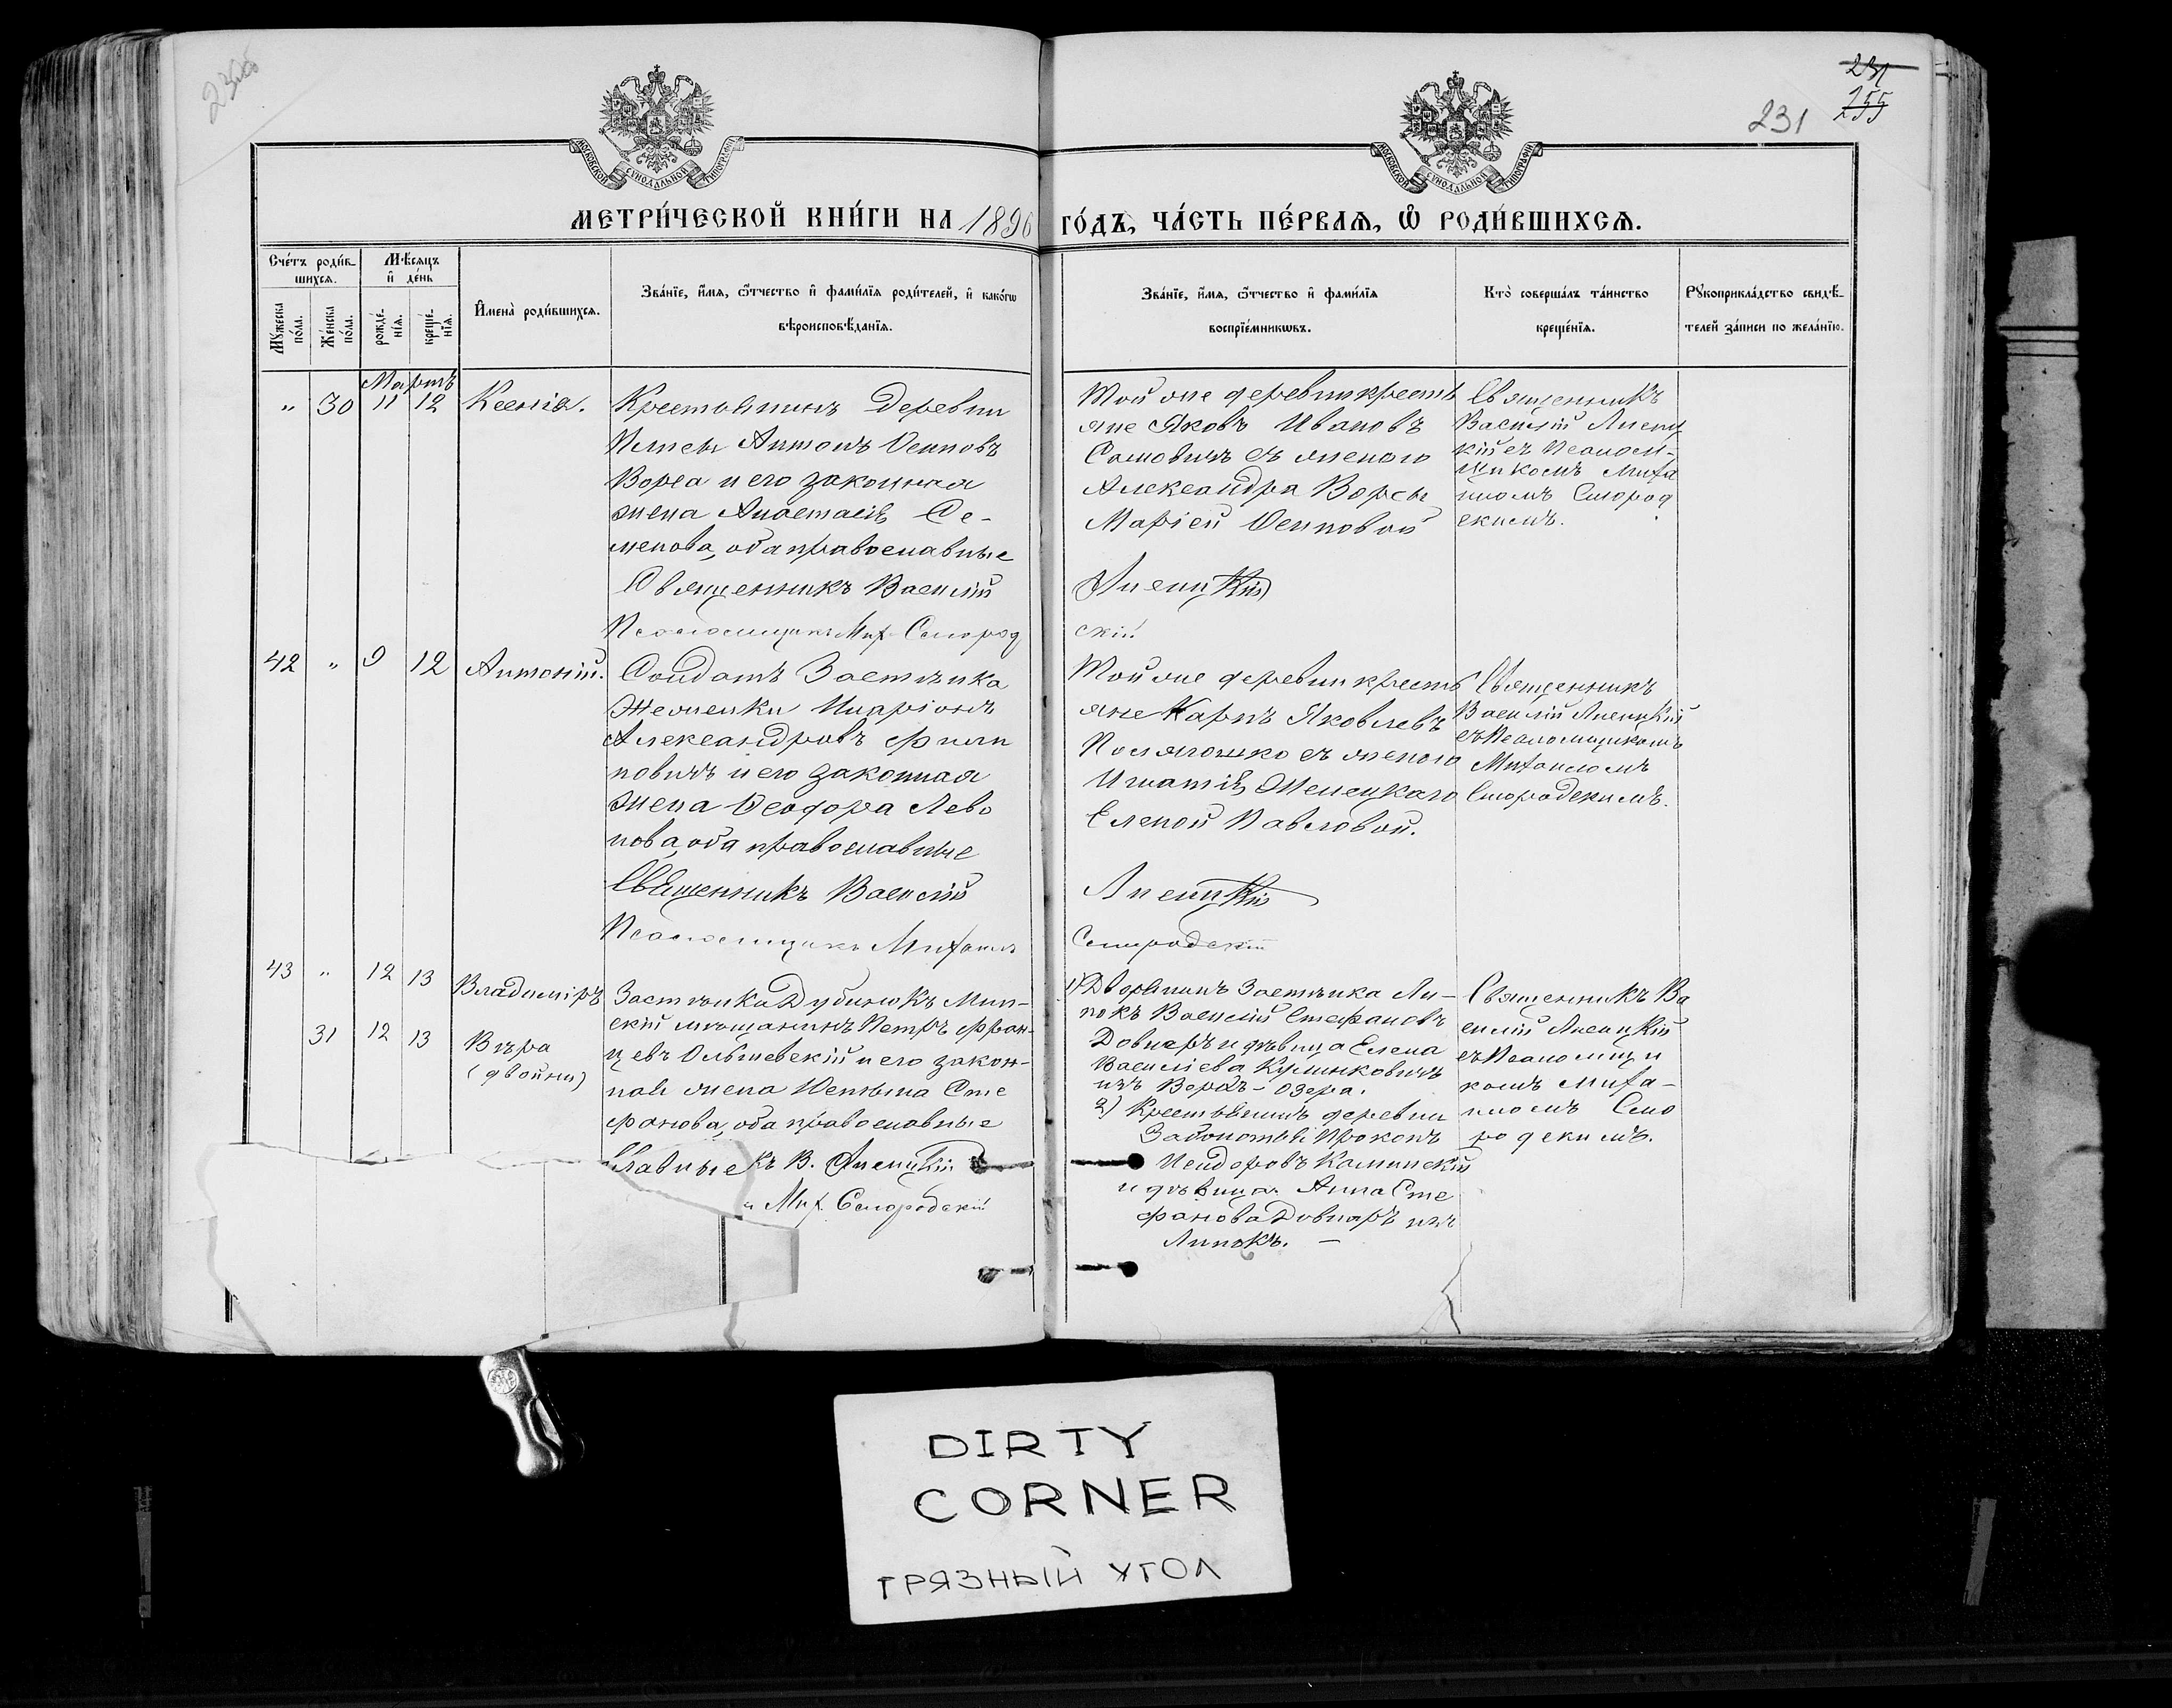 230об
231
255
231
МОСКОВСКОЙ СѴНОДАЛЬНОЙ ТИПОГРАФІИ
МОСКОВСКОЙ СѴНОДАЛЬНОЙ ТИПОГРАФІИ
МЕТРИ́ЧЕСКОЙ КНИ́ГИ НА 1896 ГО́ДЪ, ЧА́СТЬ ПЕ́РВАѦ, Ѽ РОДИ́ВШИХСѦ.
Сче́тъ роди́в-
шихсѧ.
Мꙋ́жеска по́ла.
Же́нска по́ла.
Мѣ́сѧцъ
и҆ де́нь
рожде́-
нїѧ.
креще́-
нїѧ.
И҆мена̀ роди́вшихсѧ.
Зва́нїе, и҆́мѧ, ѻ҆́тчество и҆ фами́лїѧ роди́телей, и҆ како́гѡ
вѣроисповѣ́данїѧ.
Зва́нїе, и҆́мѧ, ѻ҆́тчество и҆ фами́лїѧ
воспрїе́мникѡвъ.
Кто̀ соверша́лъ та́инство
креще́нїѧ.
Рꙋкоприкла́дство свидѣ́-
телей за́писи по жела́нїю.
Мартъ
" 30 11 12 Ксенія.
Крестьянинъ деревни
Антонъ Осиповъ
Ворса и его законная
жена Анастасія Се-
менова, оба православные
Священникъ Василій
Псаломщикъ Мих. Смород
Той же деревни кресть
яне Яковъ Ивановъ
Самовичъ съ женою
Александра Ворсы
Маріей Осиповой
Лисицкій
скій
Священникъ
Василій Лисиц
кій съ Псалом-
щикомъ Миха
иломъ Смород
скимъ.
42 " 9 12 Антоній.
Солдатъ Застѣнка
Иларіонъ
Александровъ Фили
повичъ и его законная
жена Ѳеодора Лево
нова, оба православные
Священникъ Василій
Псаломщикъ Михаилъ
Той же деревни кресть
яне Карпъ Яковлевъ
съ женою
Игнатія
Еленой Павловой.
Лисицкій
Смородскій
Священникъ
Василій Лисицкій
съ Псаломщикомъ
Михаиломъ
Смородскимъ.
43 " 12 13 Владиміръ
31 12 13 Вѣра
(двойни)
Застѣнка Дубинокъ Мин-
скій мѣщанинъ Петръ Фран-
цевъ Ольшевскій и его закон-
ная жена Сте
фанова, оба православные
славные къ В. Лисицкій
Мих. Смородскій
1) Дворянинъ Застѣнка Ли-
покъ Василій Стефановъ
Довнаръ и дѣвица Елена
Васильева Кулинковичъ
изъ Верхъ-Озера.
2) Крестьянинъ деревни
Заболотья Прокопъ
Исидоровъ Каминскій
и дѣвица Анна Сте
фанова Довнаръ изъ
Липокъ. -
Священникъ Ва
силій Лисицкій
съ Псаломщи
комъ Миха-
иломъ Смо
родскимъ.
DIRTY
CORNER
ГРЯЗНЫЙ УГОЛ